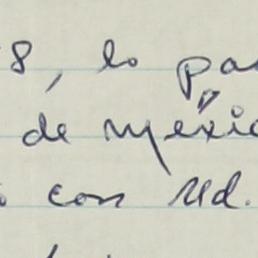 8, lo pa
de méxic
con Ud.